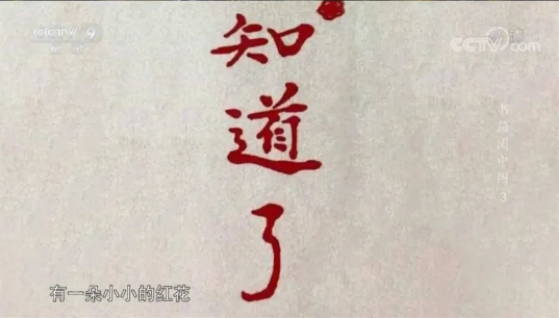 CCTV 9
CCTV.com
知
道
了
有一朵小小的红花